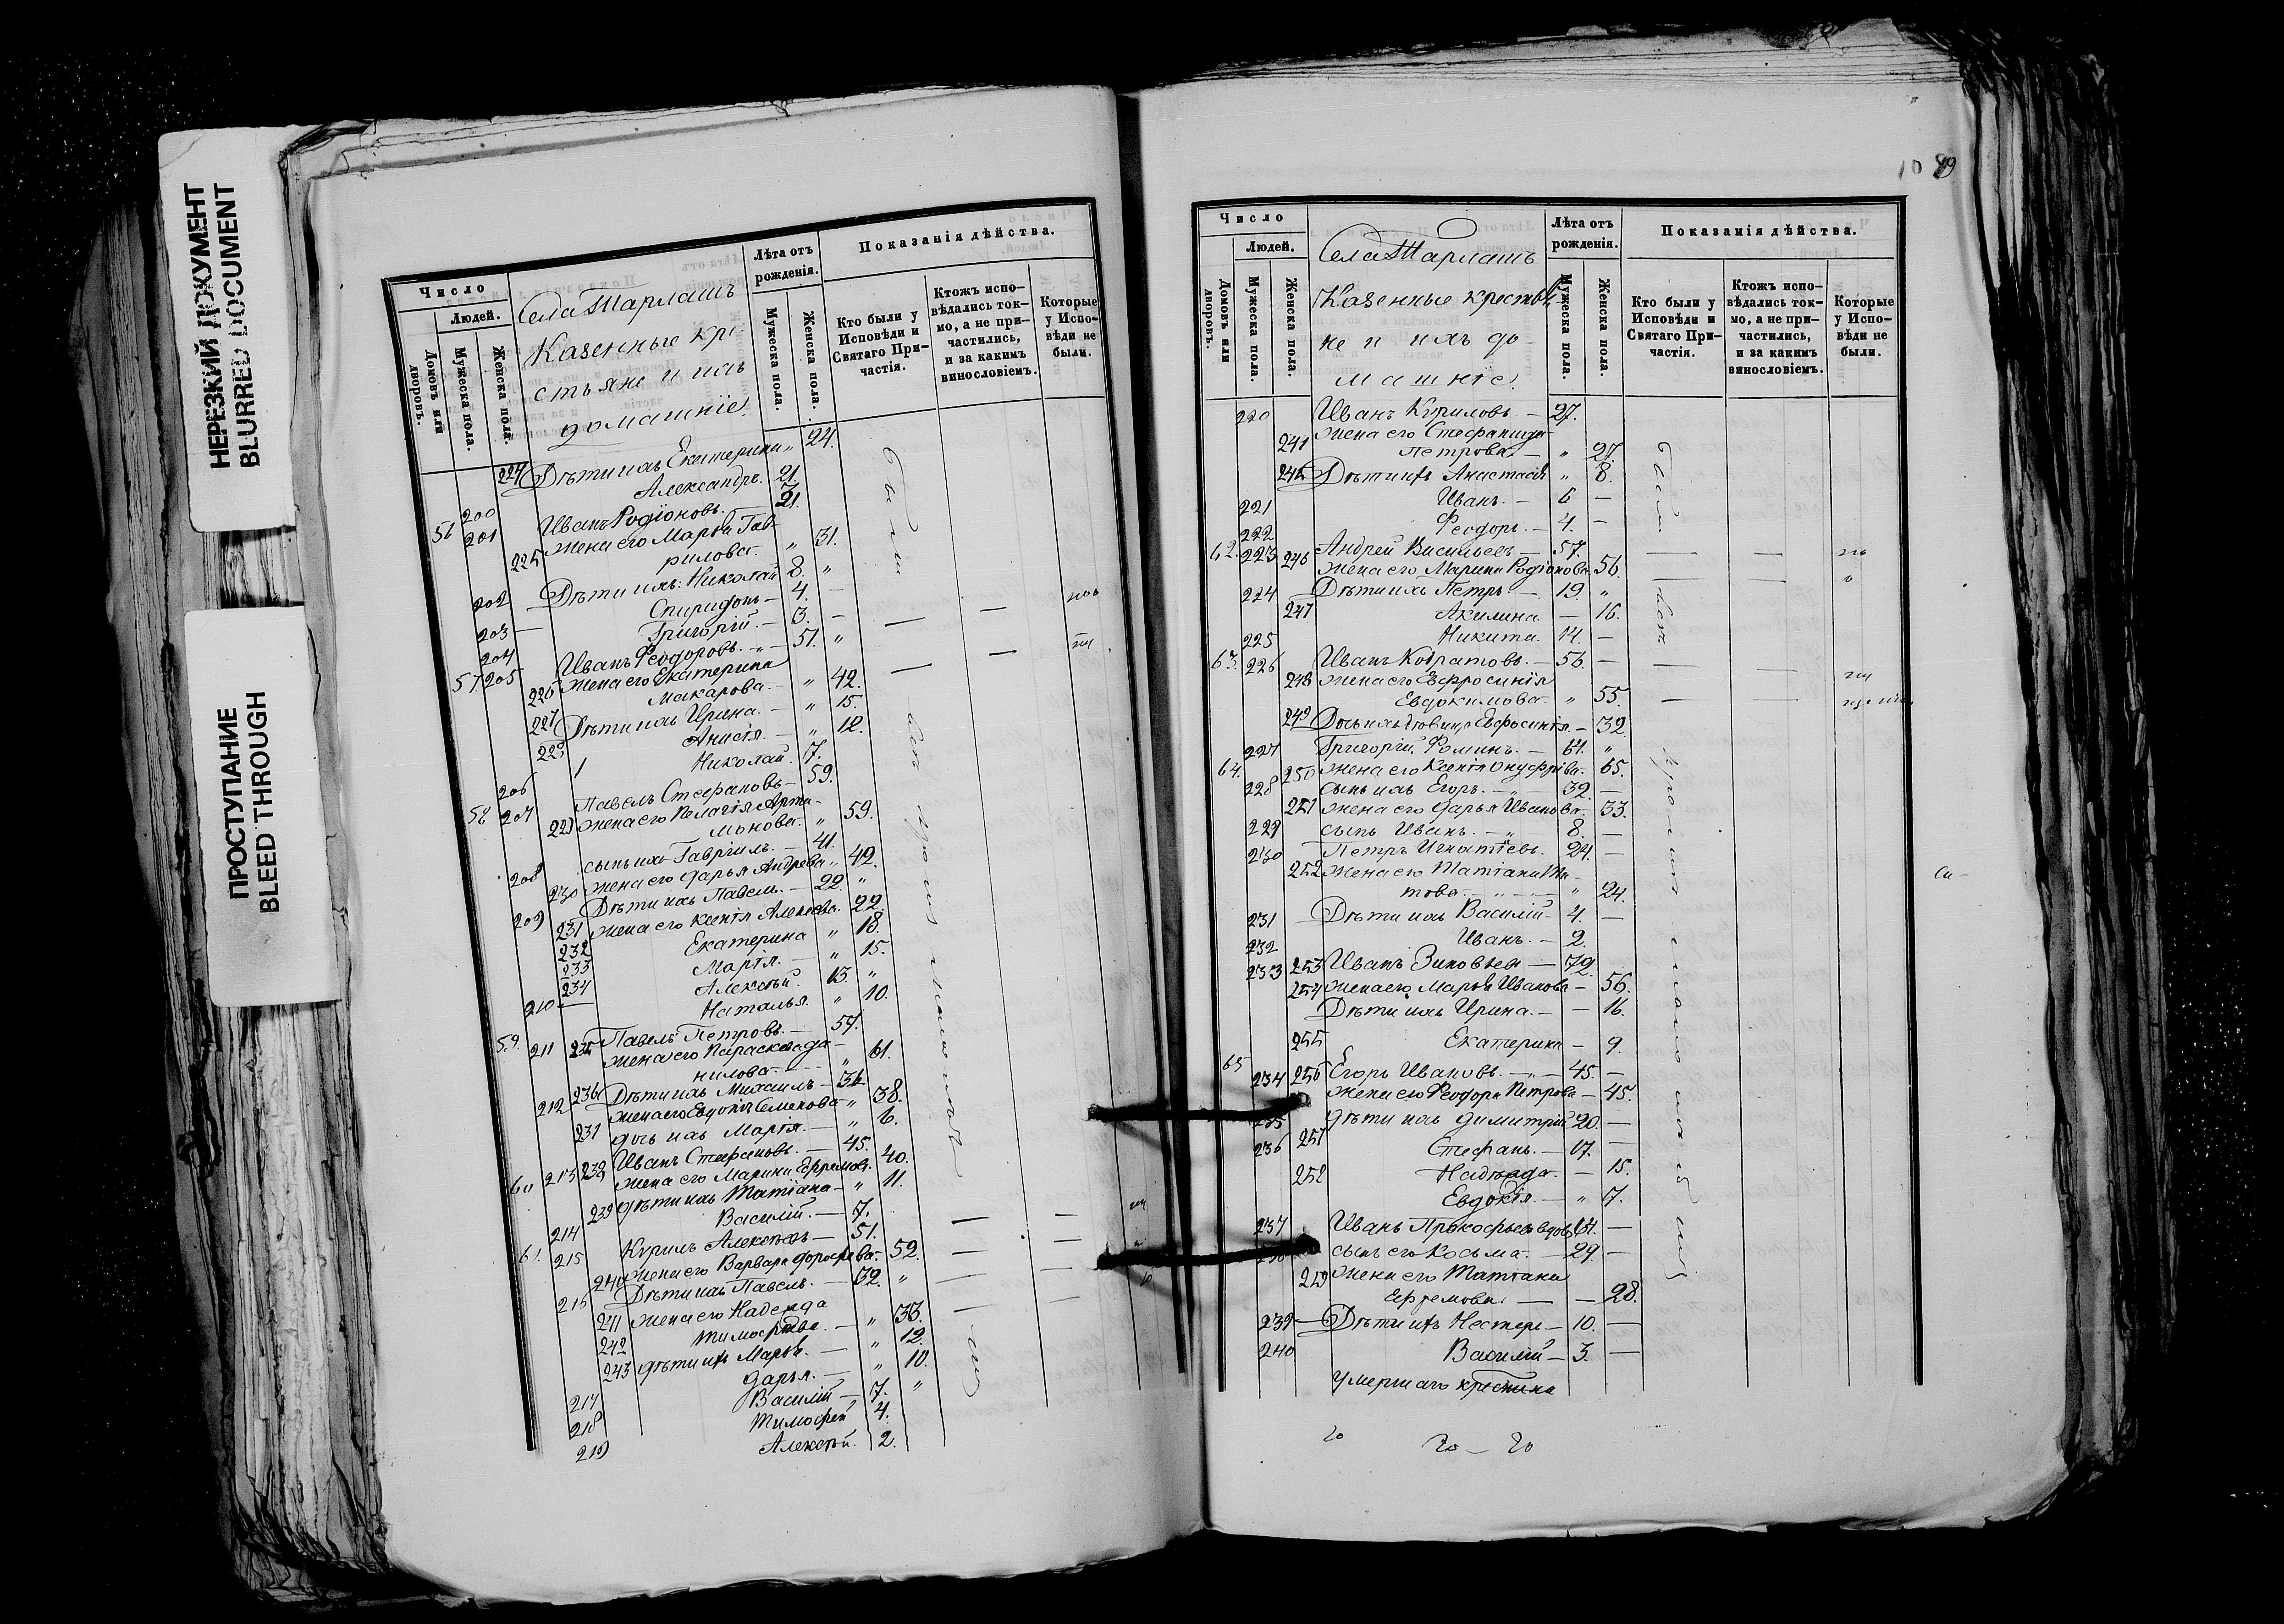 НЕРЕЗКИЙ ДОКУМЕНТ
BLURRED DOCUMENT
ПРОСТУПАНИЕ
BLEED THROUGH
Число
Людей.
Домовъ или дворовъ.
Мужеска пола.
Женска пола.
Села Тарлашъ
Казенные кре-
стьяне и ихъ
домашніе.
Лѣта отъ рожденія.
Мужеска пола.
Женска пола.
Показанія дѣйства.
Кто были у Исповѣди и Святаго Причастія.
Ктожъ исповѣдались токмо, а не причастились, и за какимъ винословіемъ.
Которые у Исповѣди не были.
224 Дѣти ихъ Екатерина " 24.
200 Александръ. 21.
56 201 Иванъ Родіоновъ. 21.
225 Жена его Марѳа Гав-
рилова. " 31.
202 Дѣти ихъ: Николай 8. "
203 Спиридонъ 4. —
204 Григорій. — 3. —
57 205 Иванъ Ѳеодоровъ. — 51. "
226 Жена его Екатерина
Макарова. — " 42.
227 Дѣти ихъ Ирина. — " 15.
228 Анисія. — " 12.
206 Николай. 7.
58 207 Павелъ Стефановъ — 59.
229 Жена его Пелагія Арта-
монова. " 59.
208 сынъ ихъ Гавріилъ. — 41.
230 Жена его Дарья Андреева " 42.
209 Дѣти ихъ Павелъ. — 22. "
231 Жена его Ксенія Алексѣева. 22.
232 Екатерина " 18.
233 Марія. — " 15.
210 234 Алексѣй. 13. "
Наталья. " 10.
59. 211 235 Павелъ Петровъ. — 57.
Жена его Параскева Да-
нилова. — " 61.
212 236 Дѣти ихъ Михаилъ — 36.
Жена его Евдокія Семенова " 38.
237 дочь ихъ Марія. — " 6.
60 213 238 Иванъ Стефановъ. — 45.
Жена его Марина Ефремова. 40.
239 Дѣти ихъ Татіана — " 11.
214 Василій. — 7.
61. 215 Кирилъ Алексѣевъ — 51.
240 Жена его Варвара Дорофѣева. 52.
216 Дѣти ихъ Павелъ. — 32. "
241 Жена его Надежда
242 Тимофѣева. — " 33.
243 Дѣти ихъ Марѳа. — " 12.
Дарья. — " 10.
217 Василій — 7. "
218 Тимофей 4.
219 Алексѣй. 2.
были
10 89
Число
Людей.
Домовъ или дворовъ.
Мужеска пола.
Женска пола.
Села Тарлашъ
Казенные крестья-
не и ихъ до-
машніе.
Лѣта отъ рожденія.
Мужеска пола.
Женска пола.
Показанія дѣйства.
Кто были у Исповѣди и Святаго Причастія.
Ктожъ исповѣдались токмо, а не причастились, и за какимъ винословіемъ.
Которые у Исповѣди не были.
220 Иванъ Кириловъ — 27.
241 Жена его Стефанида
Петрова — " 27.
245 Дѣти ихъ Анастасія " 8.
221 Иванъ. — 6 —
222 Ѳеодоръ. — 4. —
62. 223 246 Андрей Васильевъ — 57.
Жена его Марина Родіонова. 56.
224 Дѣти ихъ Петръ — 19. "
247 Акилина — 16.
225 Никита. 14. —
63. 226 Иванъ Кодратовъ. — 56. —
248 Жена его Евфросинія
Евдокимова. " 55.
249 Дочь ихъ Евфосинія. — 32.
227 Григорій Фоминъ. — 64. "
64. 250 Жена его Ксенія Онуфріева. 65.
228 Сынъ ихъ Егоръ. — " — 32. —
251 Жена его Дарья Иванова. 33.
229 сынъ Иванъ. — " 8. —
230 Петръ Игнатіевъ. 24. —
252 Жена его Татіана Ти-
това. — " — " 24.
231 Дѣти ихъ Василій — 4. —
232 Иванъ. — 2.
233 253 Иванъ Зиновьевъ — 72.
254 Жена его Марѳа Иванова — 56.
Дѣти ихъ Ирина. — — 16.
255 Екатерина — 9.
65 234 256 Егоръ Ивановъ. — " — 45. —
Жена его Ѳеодора Петрова — 45.
235 Дѣти ихъ Димитрій 20. —
236 257 Стефанъ. — 17. —
252 Надежда. — 15.
Евдокія. — " 7.
237 Иванъ Прокофьевъ вдовъ 64. —
238 сынъ его Косьма. — 29. —
259 Жена его Татіана
Ефремова. — — 28.
239 — Дѣти ихъ Несторъ — 10. —
240 Василій — 3. —
умершаго
20
20 — 20